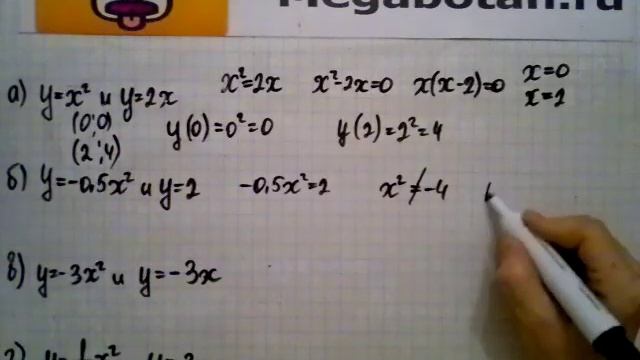 Megabotan.ru
а) y=x² и y=2x x²=2x x²-2x=0 x(x-2)=0 x=0
x=2
(0;0) y(0)=0²=0 y(2)=2²=4
(2;4)
б) y=-0,5x² и y=2 -0,5x²=2 x²≠-4
в) y=-3x² и y=-3x